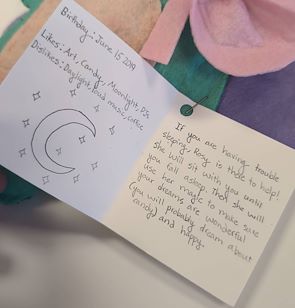 Birthday: June 15 2019
Likes: Art, Candy, Moonlight, PJs
Dislikes: Daylight, loud music, coffee
If you are having trouble
sleeping, Rory is there to help!
She will sit with you until
you fall asleep. Then she will
use her magic to make sure
your dreams are wonderful
(you will probably dream about
candy) and happy.